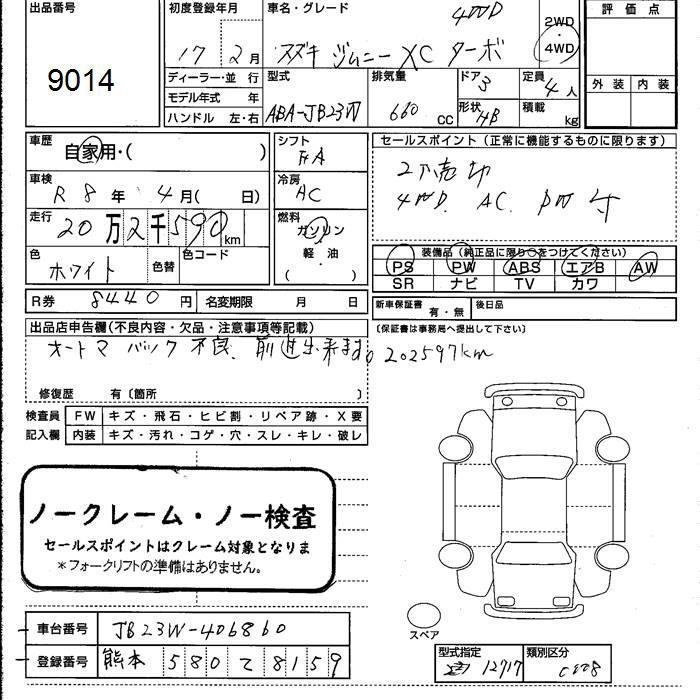 出品番号 初度登録年月 車名・グレード 4WD 2WD 評価点
9014 17 2月 スズキ ジムニー XC ターボ 4WD
ディーラー・並行 型式 排気量 ドア 3 定員 4人 外装 内装
モデル年式 年 ABA-JB23W 660 cc 形状 HB 積載 kg
ハンドル 左・右
車歴 自家用・( ) シフト FA セールスポイント(正常に機能するものに限ります)
車検 R8年 4月( 日) 冷房 AC 4WD. AC. PW 付
走行 20万2千590km 燃料 ガソリン・軽油( )
色 ホワイト 色替 色コード 装備品(純正品に限り○をつけてください)
PS PW ABS エアB AW
SR ナビ TV カワ
R券 8440円 名変期限 月 日 新車保証書 有・無 後日品
出品店申告欄(不良内容・欠品・注意事項等記載) (保証書は事務局へ提出して下さい)
オートマ バック不良. 前進出来ます。202597km
修復歴 有〔箇所
検査員 FW キズ・飛石・ヒビ割・リペア跡・X要
記入欄 内装 キズ・汚れ・コゲ・穴・スレ・キレ・破レ
ノークレーム・ノー検査
セールスポイントはクレーム対象となりま
*フォークリフトの準備はありません。
スペア
車台番号 JB23W-406860
登録番号 熊本 580 て 8159
型式指定 12717 類別区分